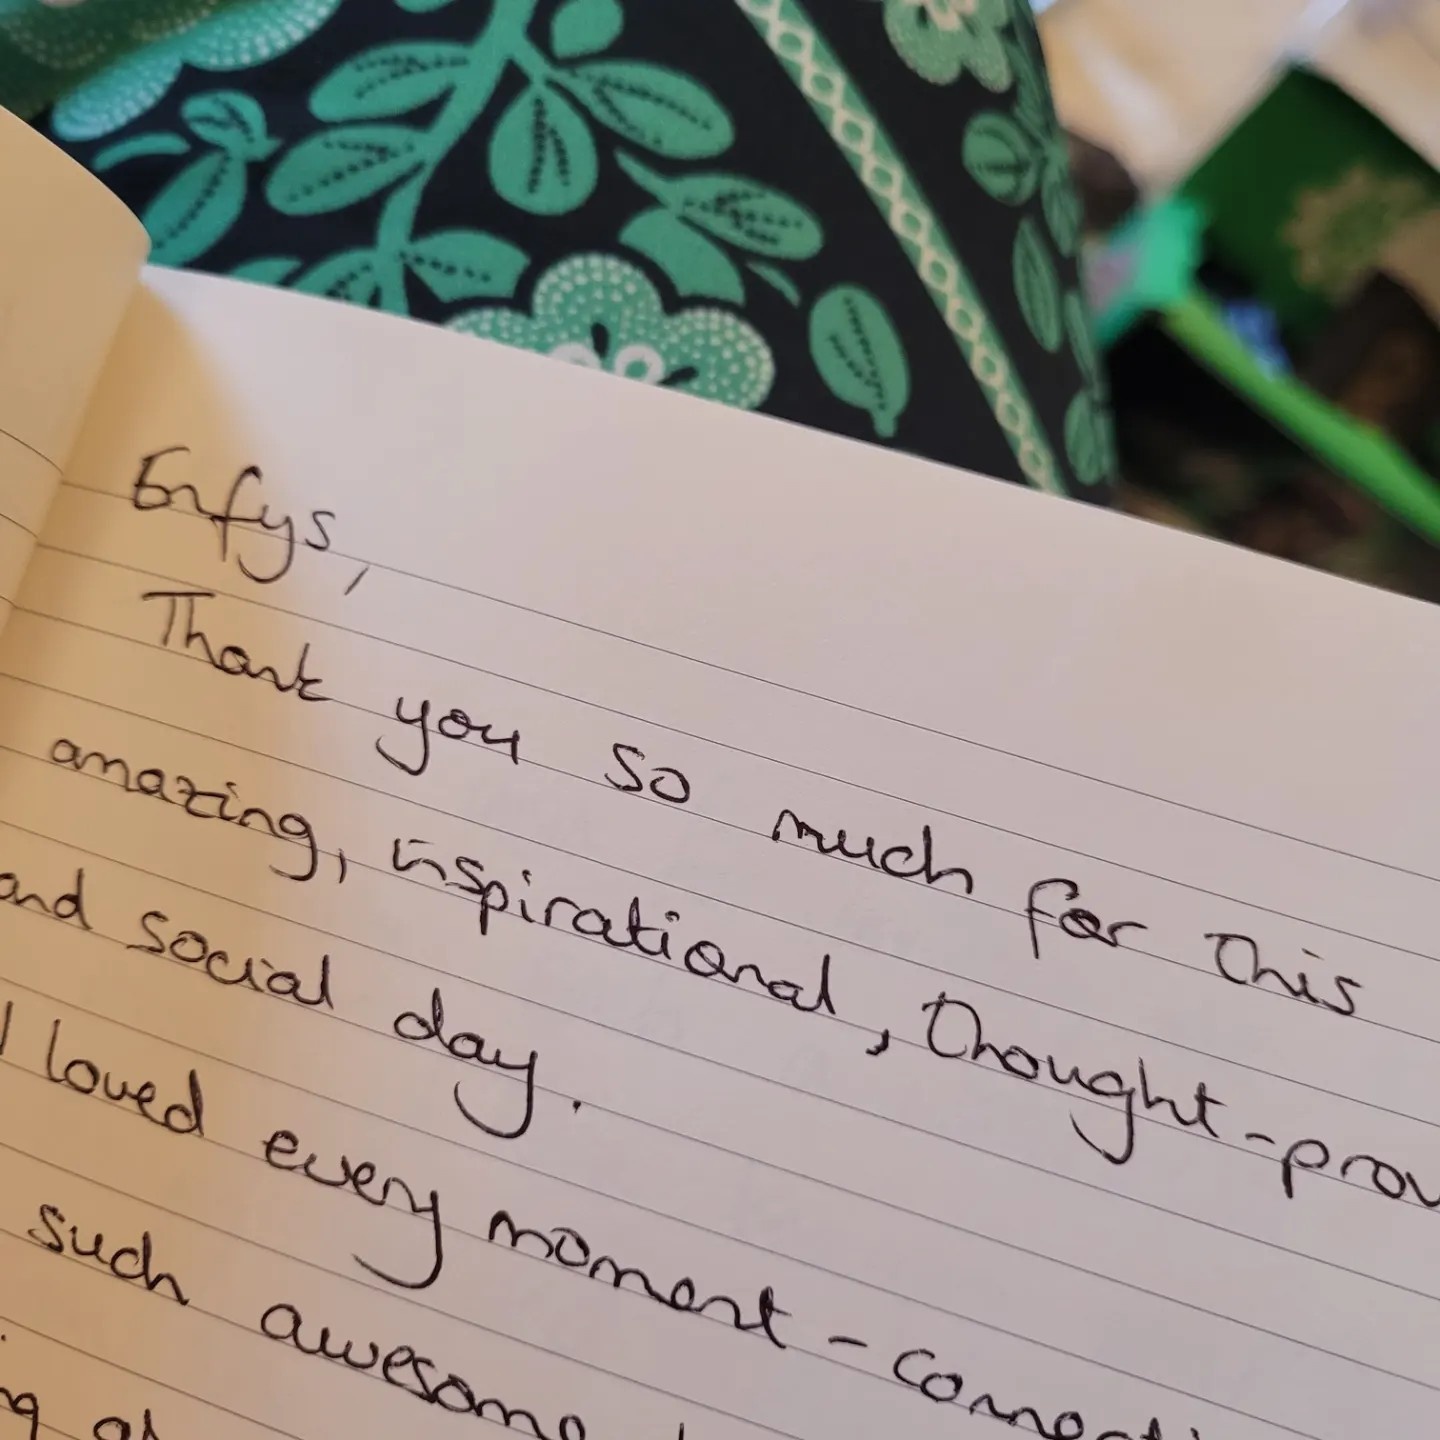 Enfys,
Thank you so much for this
amazing, inspirational, thought-prov
and social day.
I loved every moment - connecti
such awesome